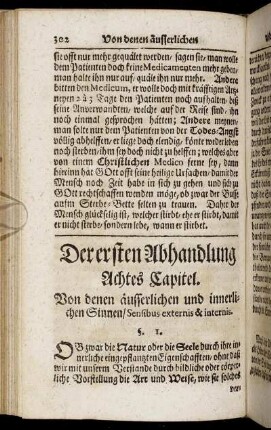 302 Von denen äusserlichen
sie offt nur mehr gequälet werden/ sagen sie/ man wolle
dem Patienten doch keine Medicamenten mehr geben/
man halte ihn nur auf/ quäle ihn nur mehr. Andere
bitten den Medicum, er wolle doch mit kräfftigen Artz-
neyen 2 à 3 Tage den Patienten noch aufhalten/ biß
seine Anverwandten/ welche auf der Reise sind/ ihn
noch einmal gesprochen hätten; Andere meynen/
man solte nur dem Patienten von der Todes-Angst
völlig abhelffen/ er liege doch elendig/ könte weder leben
noch sterben/ ihm sey doch nicht zu helffen; welches aber
von einem Christlichen Medico ferne sey/ dann
hierinn hat GOtt offt seine heilige Ursachen/ damit der
Mensch noch Zeit habe in sich zu gehen/ und sich zu
GOtt rechtschaffen wenden möge/ ob zwar der Busse
aufm Sterbe-Bette selten zu trauen. Daher der
Mensch glückselig ist/ welcher stirbt/ ehe er stirbt/ damit
er nicht sterbe/ sondern lebe/ wann er stirbet.
Der ersten Abhandlung
Achtes Capitel.
Von denen äusserlichen und innerli-
chen Sinnen/ Sensibus externis & internis.
§. 1.
OB zwar die Natur oder die Seele durch ihre in-
nerliche eingepflantzten Eigenschafften/ ohne daß
wir mit unserm Verstande durch bildliche oder körper-
liche Vorstellung die Art und Weise/ wie sie solches